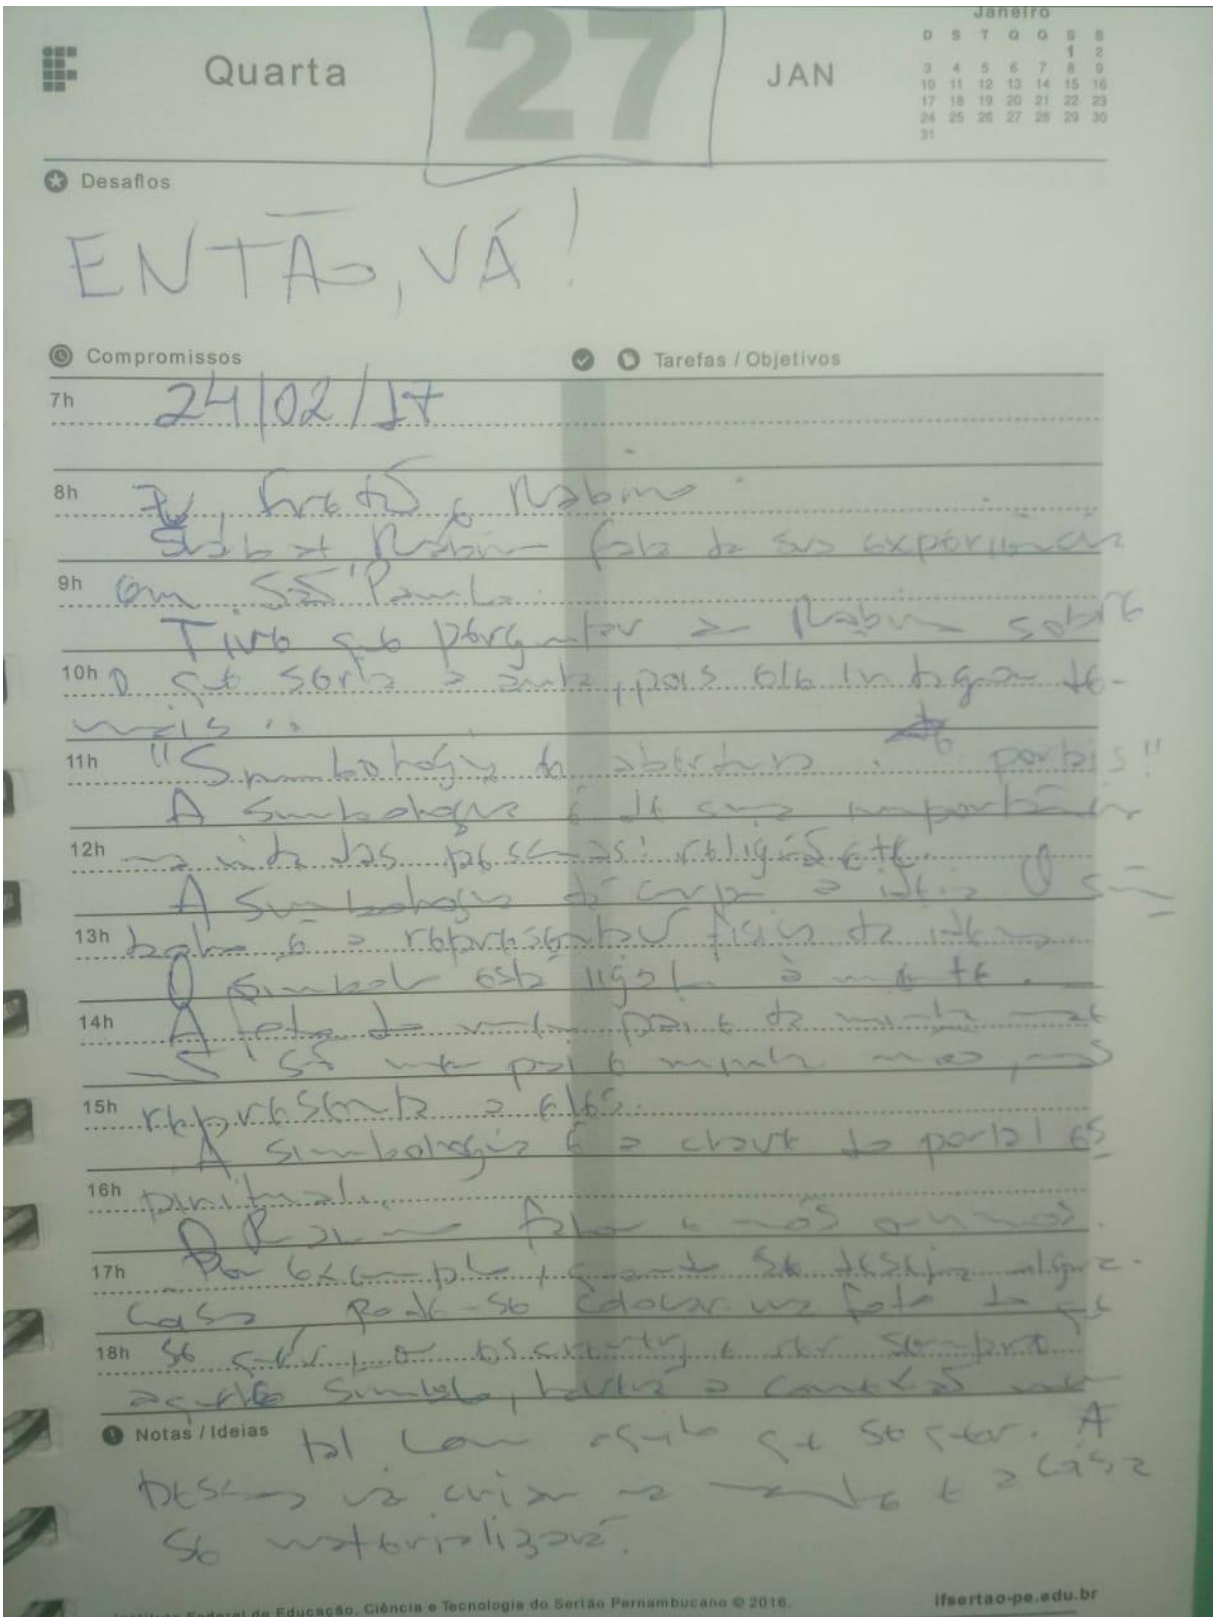 Janeiro
D S T Q Q S S
1 2
3 4 5 6 7 8 9
10 11 12 13 14 15 16
17 18 19 20 21 22 23
24 25 26 27 28 29 30
31
Quarta 27 JAN
Desafios
ENTÃO, VÁ!
Compromissos Tarefas / Objetivos
7h 24/02/17
8h Eu, e Rabino.
Rabino fala da sua experiência
9h em São Paulo.
Tive que perguntar ao Rabino sobre
10h o que seria a aula, pois ele
mais
11h "Simbologia da abertura de portais"
A simbologia é de suma importância
12h na vida das pessoas: religião etc.
A Simbologia dá corpo a ideia. O sím-
13h bolo é a física da ideia.
O símbolo está ligado à mente.
14h A foto do meu pai e da minha mãe
não são meu pai e minha mãe, mas
15h representa a eles.
A simbologia é a chave do portal es
16h piritual.
O e nós
17h Por exemplo, quando se deseja alguma
casa, pode-se colocar uma foto do que
18h se quer, e ver sempre
aquele símbolo, haverá a conexão men
Notas / Ideias
tal com aquilo que se quer. A
pessoa vai criar na mente e a casa
se materializará.
Federal de Educação, Ciência e Tecnologia do Sertão Pernambucano © 2016.
ifsertao-pe.edu.br